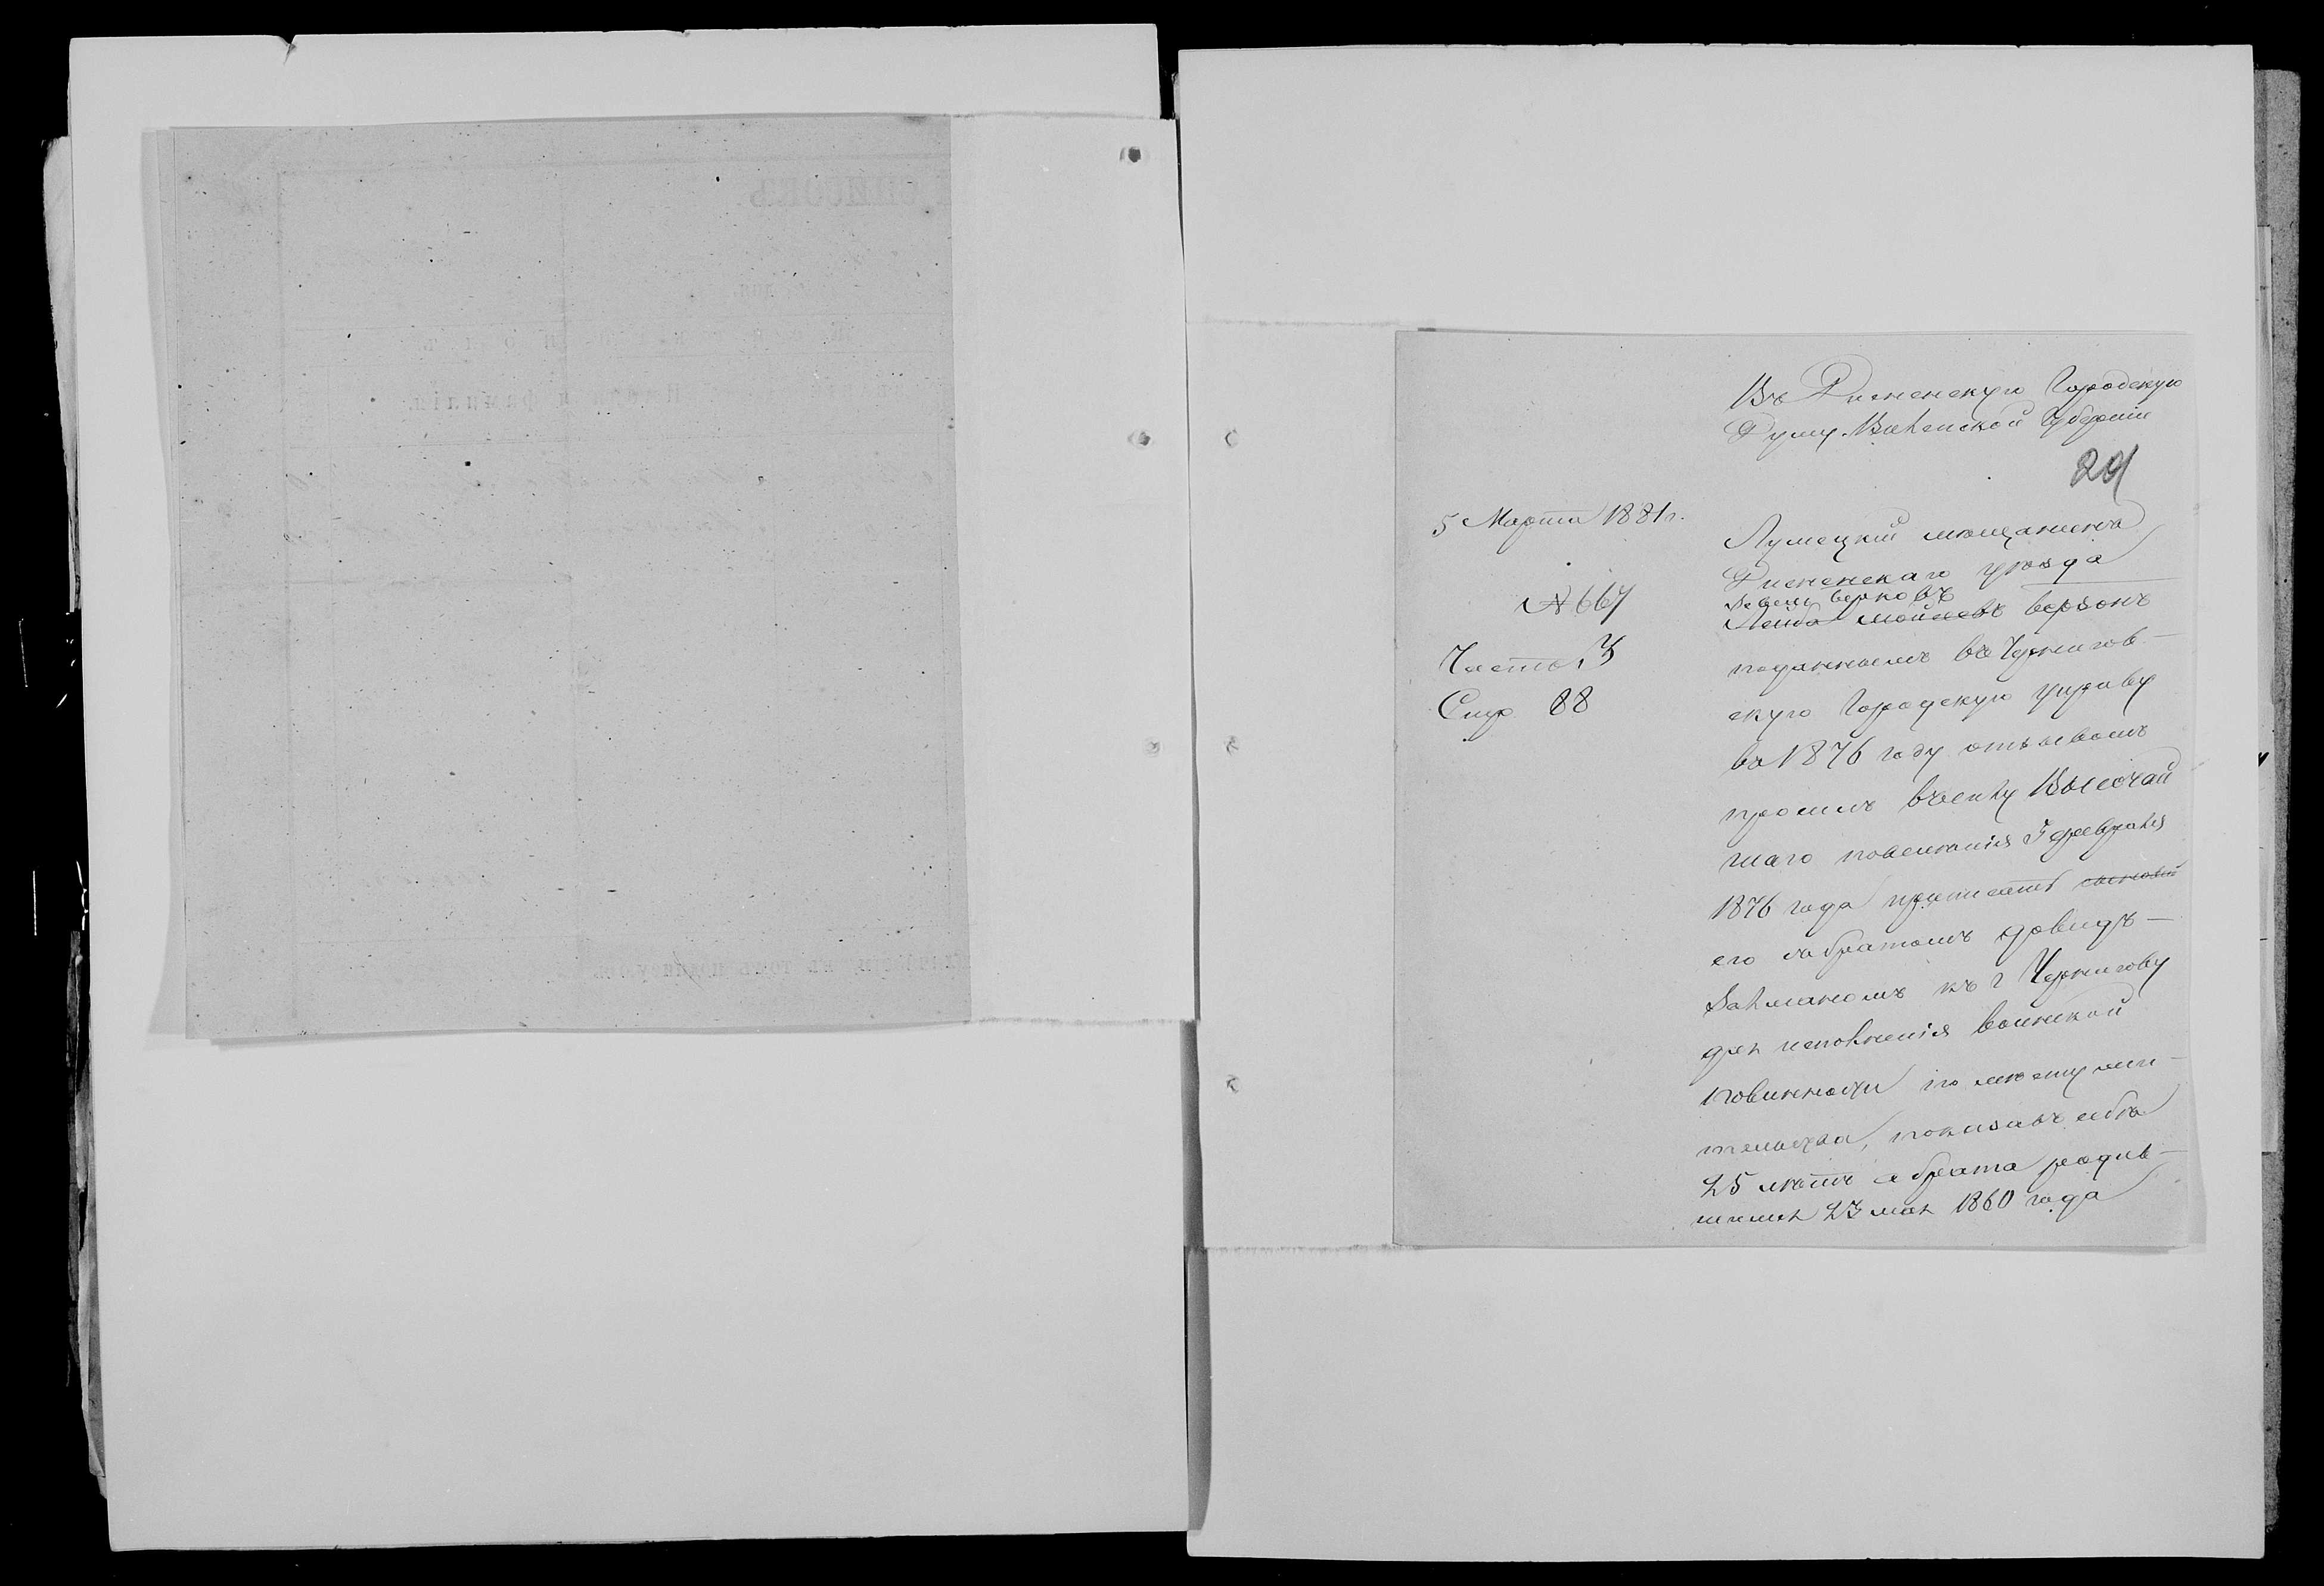 Въ Дисненскую Городскую
Думу Виленской Губерніи
201
5 Марта 1881 г.
№ 667
Часть 3
Стр 88
Лужецкій мѣщанинъ
Дисненскаго уѣзда
Берковъ
Лейба Берзонъ
поданнымъ въ Чернигов-
скую Городскую управу
въ 1876 году отзывомъ
просилъ въ силу Высочай
шаго повеленія 5 февраля
1876 года приписать
его съ братомъ Довидъ-
Залманомъ къ г Чернигову
для исполненія воинской
повинности по мѣсту жи-
тельства, показавъ себѣ
25 лѣтъ а брата родив-
шимся 23 мая 1860 года